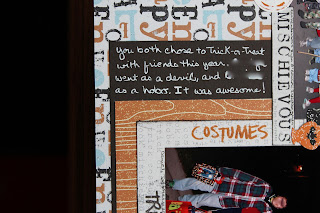 You both chose to Trick-or-Treat
with friends this year.
went as a devil, and
as a hobo. It was awesome!
MISCHIEVOUS
COSTUMES